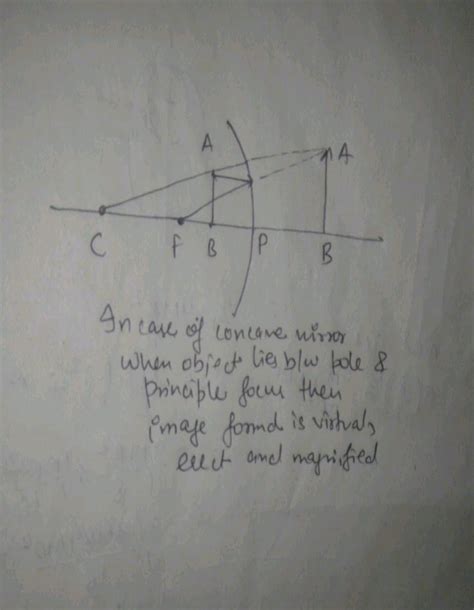 A
A
C F B P B
In case of concave mirror
when object lies b/w pole &
principle focus then
image formd is virtual,
erect and magnified